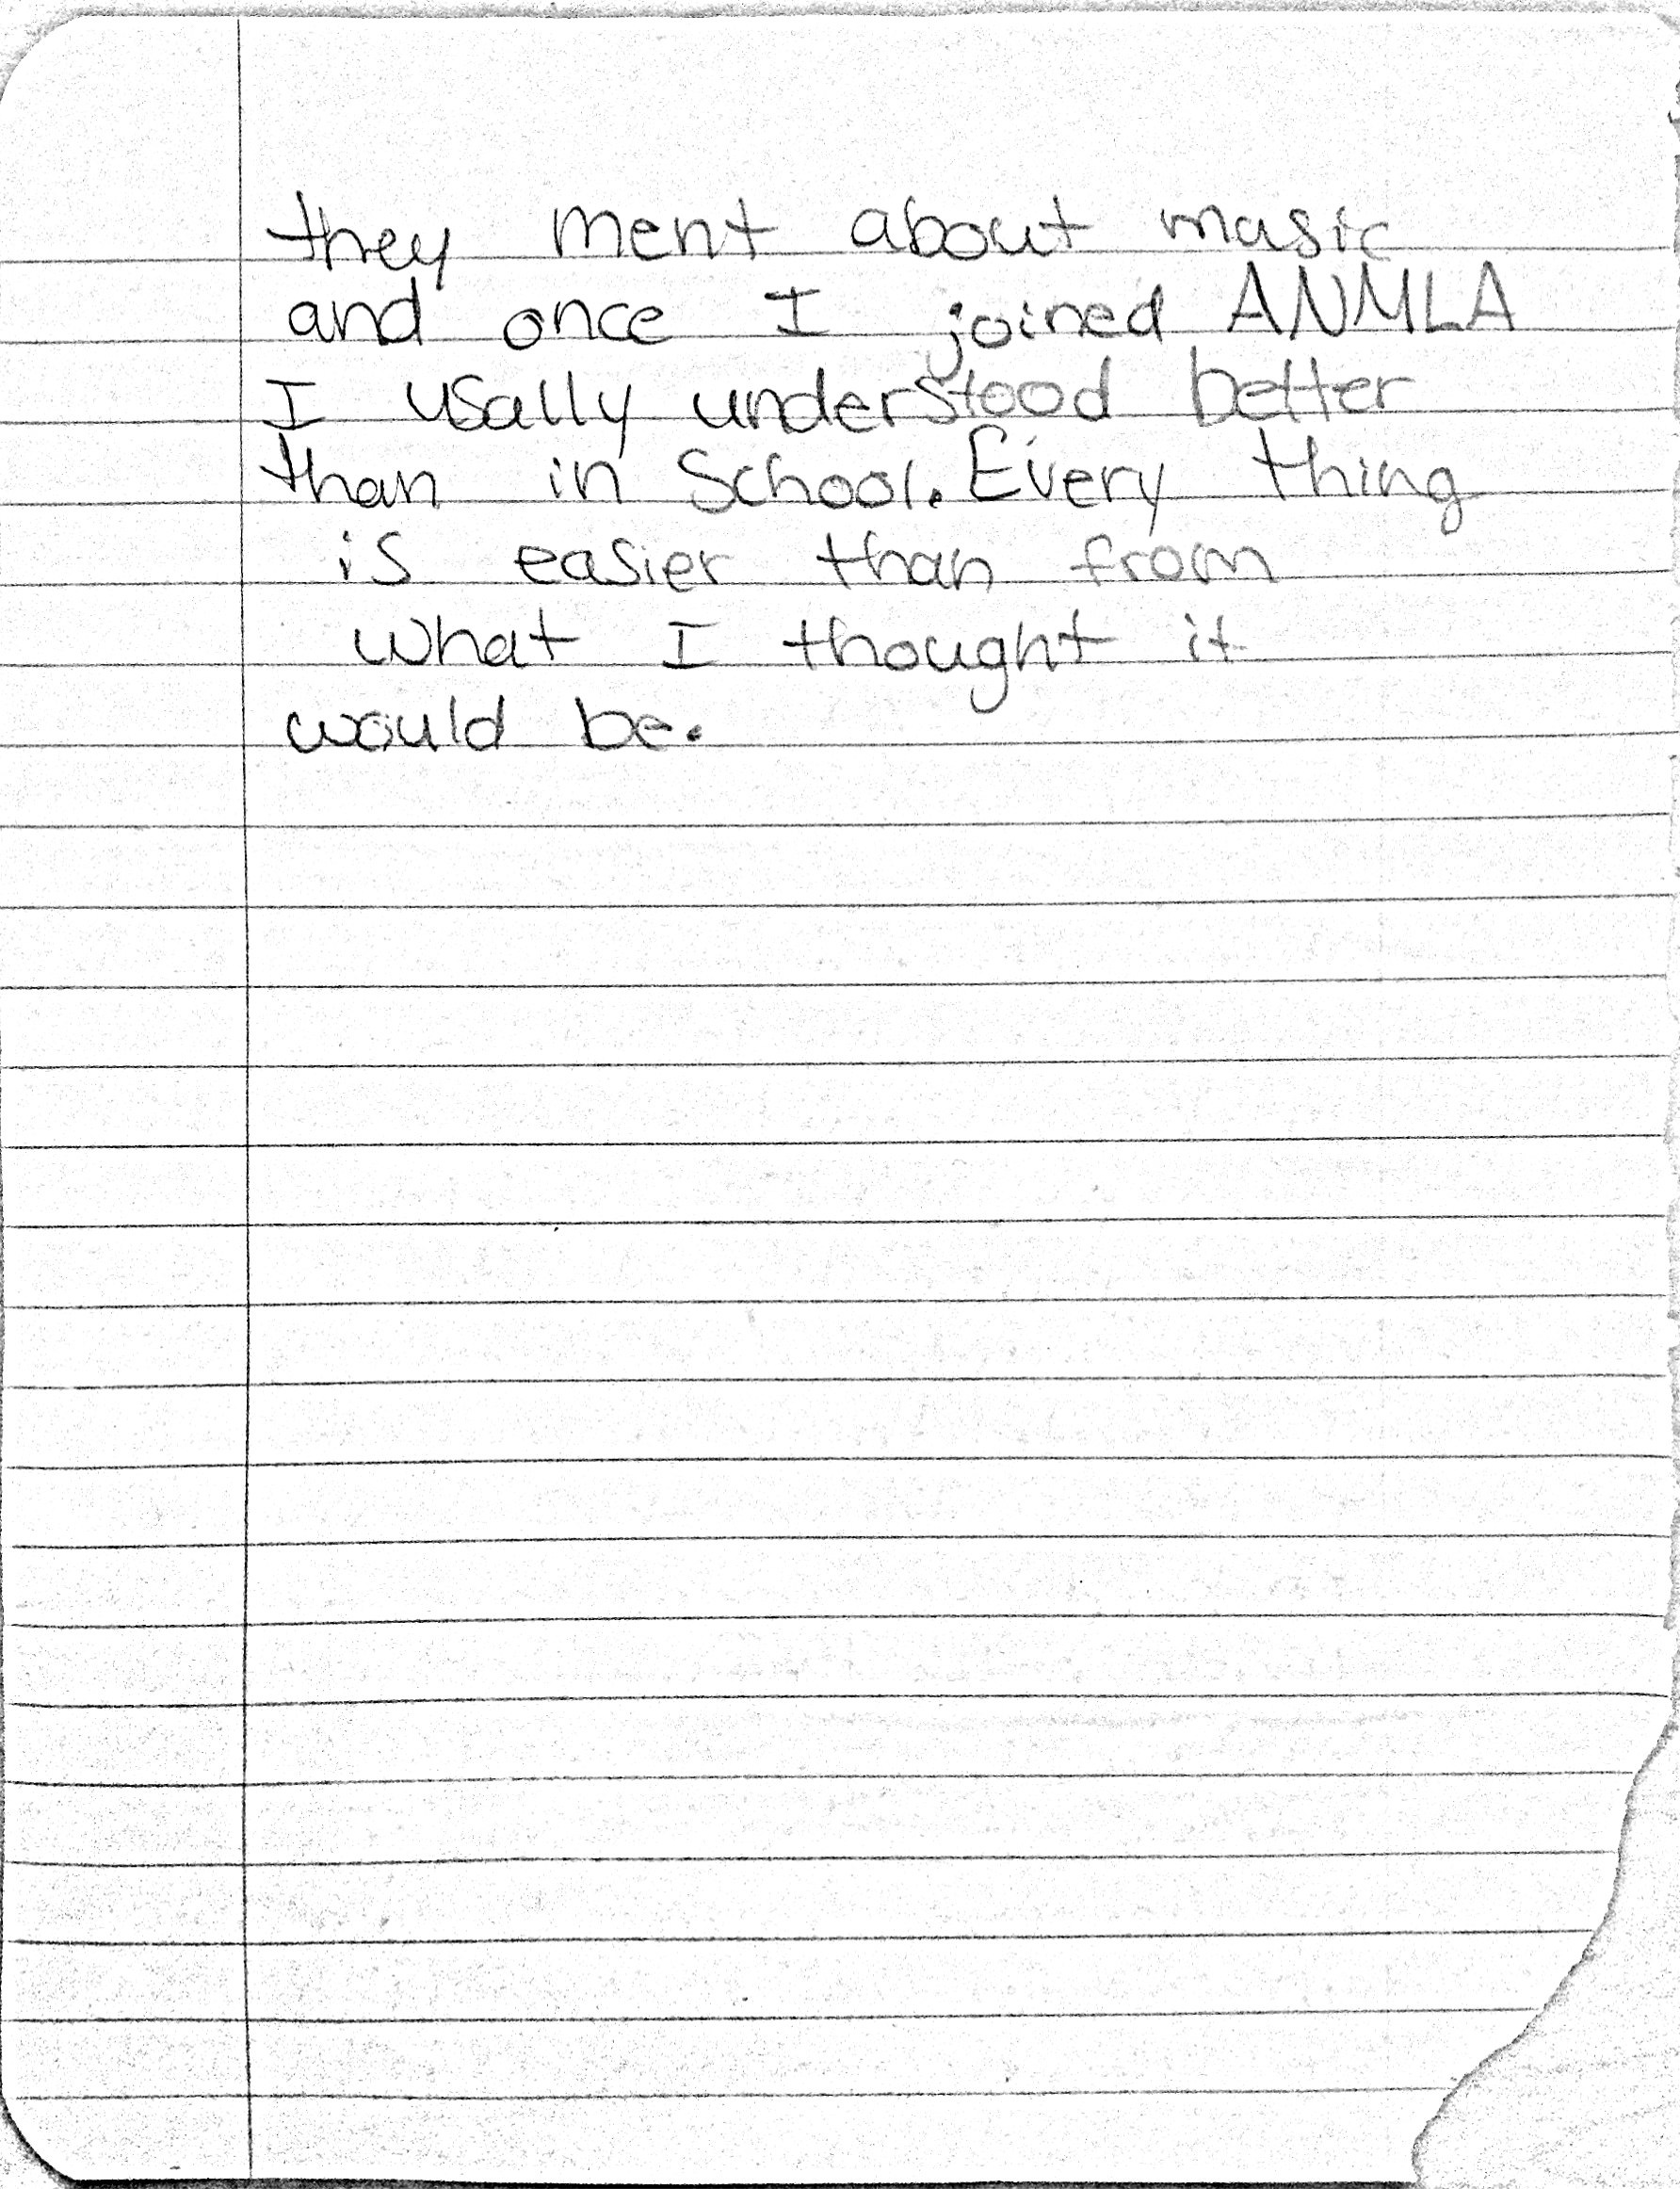 they ment about masic
and once I joined ANMLA
I usally understood better
than in School. Every thing
is easier than from
what I thought it
would be.